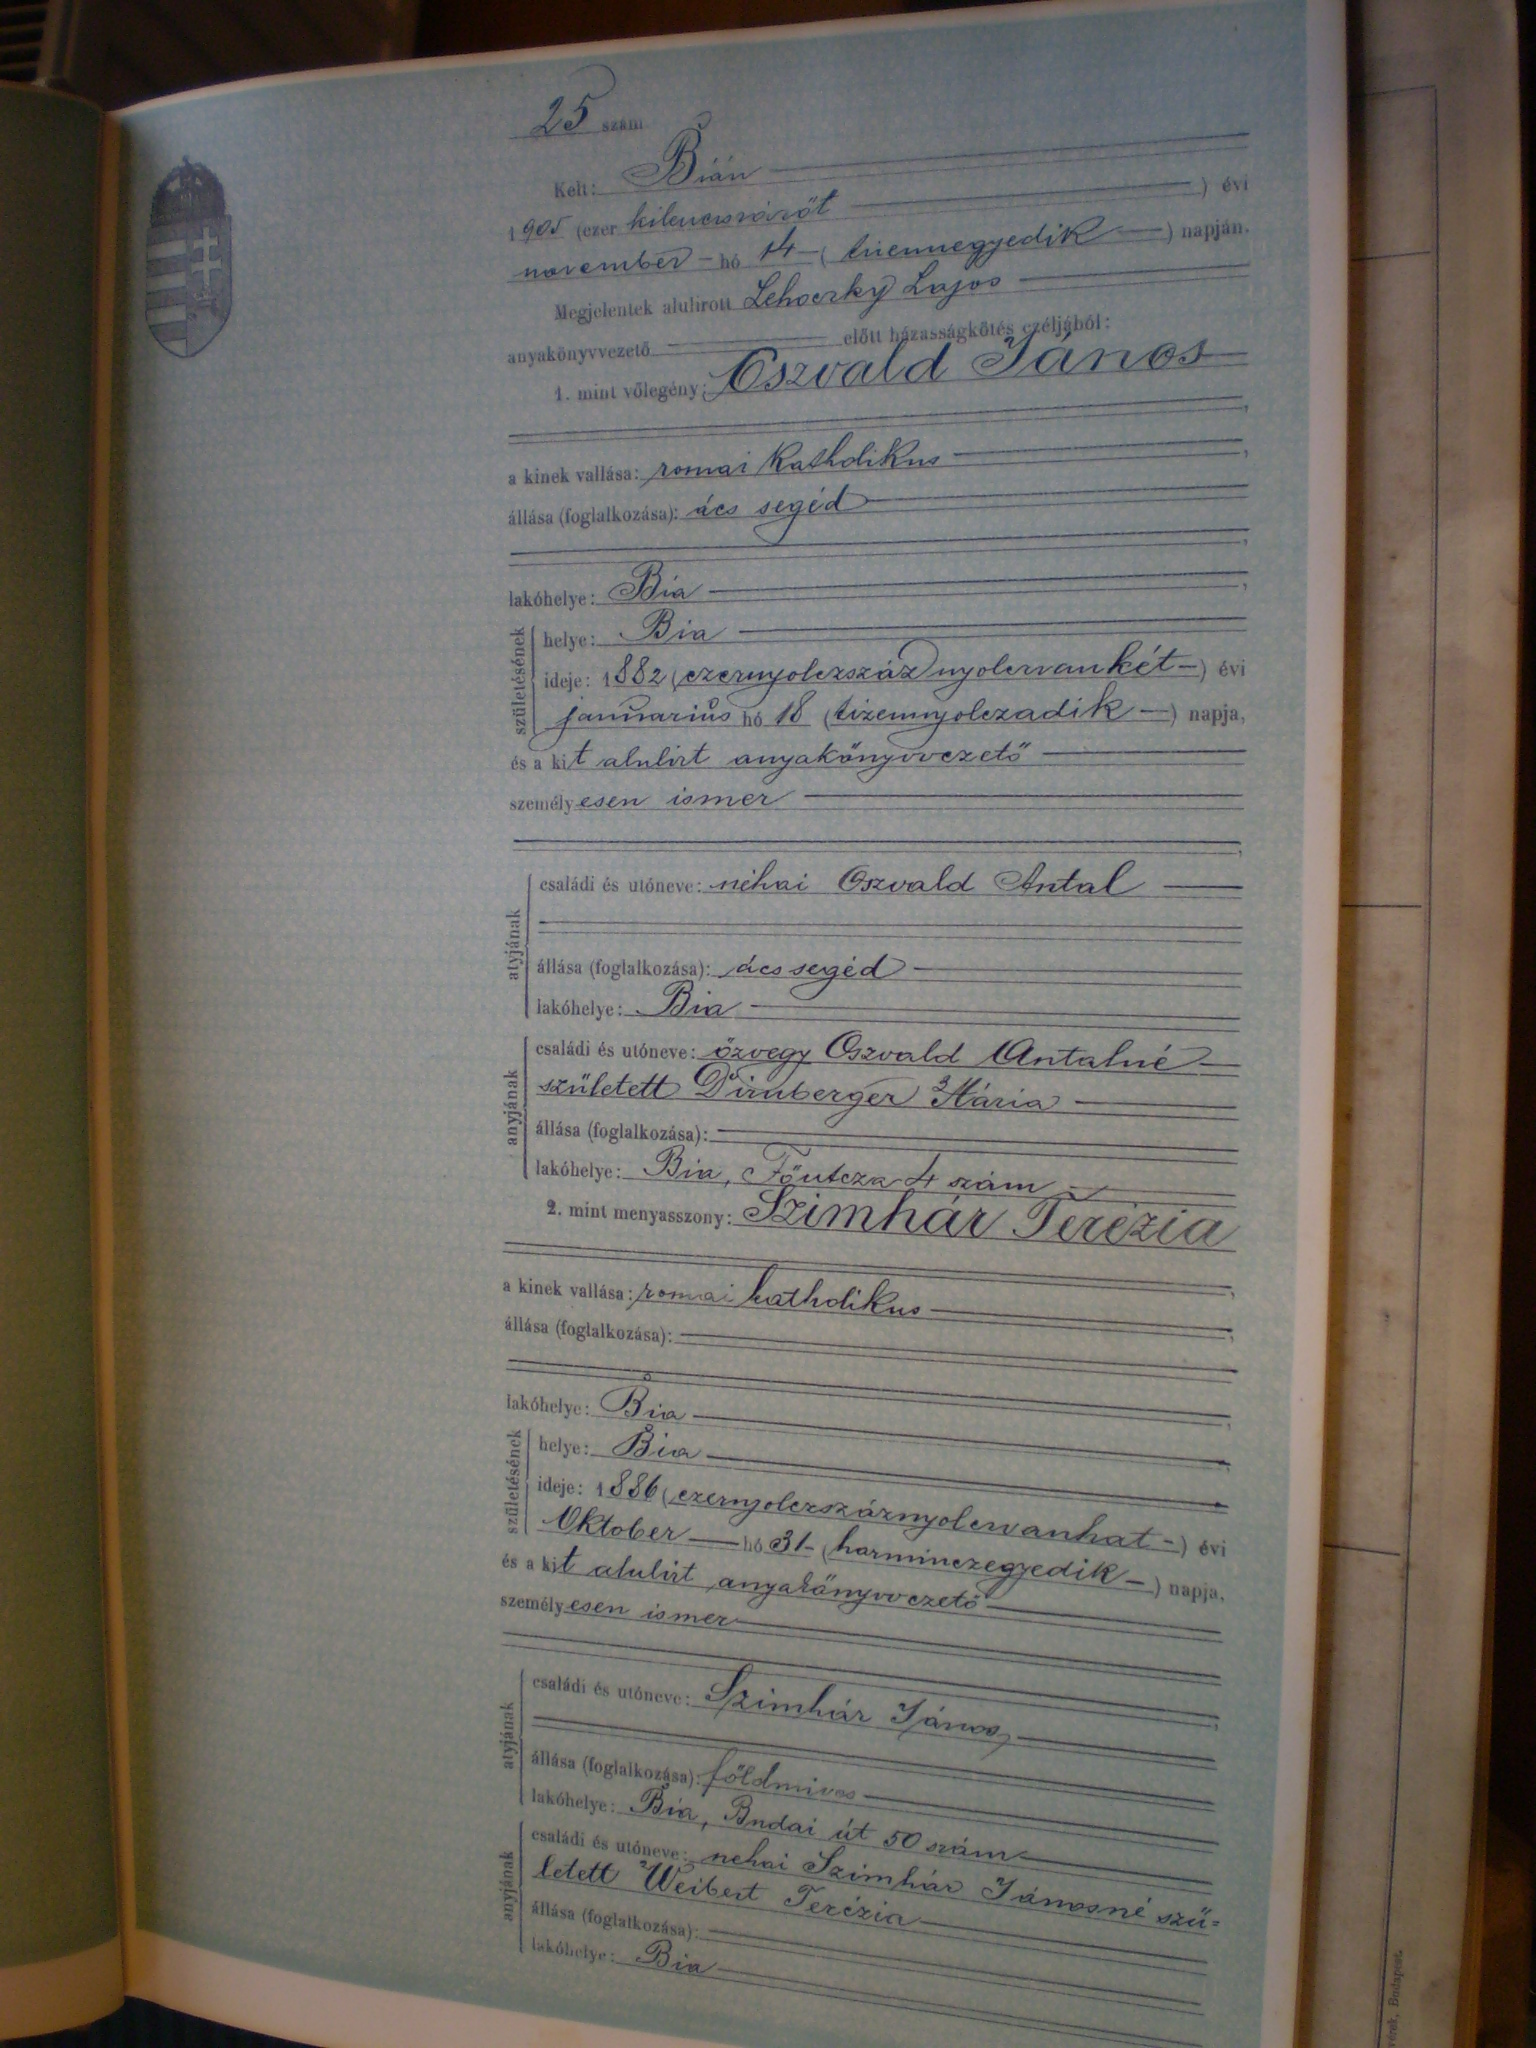 25 szám
Kelt: Bián
1905 (ezer kilenczszázöt) évi
november hó 14 (tizennegyedik) napján.
Megjelentek alulirott Lehoczky Lajos
anyakönyvvezető előtt házasságkötés czéljából:
1. mint vőlegény: Oszvald János
a kinek vallása: romai katholikus,
állása (foglalkozása): ács segéd
lakóhelye: Bia,
születésének
helye: Bia
ideje: 1882 (ezernyolczszáz nyolczvankét) évi
januárius hó 18 (tizennyolczadik) napja,
és a kit alulirt anyakönyvvezető
személyesen ismer,
atyjának
családi és utóneve: néhai Oszvald Antal
állása (foglalkozása): ács segéd
lakóhelye: Bia
anyjának
családi és utóneve: özvegy Oszvald Antalné
született Dirnberger Mária
állása (foglalkozása):
lakóhelye: Bia, Főutcza 4 szám
2. mint menyasszony: Szimhár Terézia
a kinek vallása: romai katholikus,
állása (foglalkozása):
lakóhelye: Bia,
születésének
helye: Bia
ideje: 1886 (ezernyolczszáznyolczvanhat) évi
Oktober hó 31 (harminczegyedik) napja,
és a kit alulirt anyakönyvvezető
személyesen ismer
atyjának
családi és utóneve: Szimhár János,
állása (foglalkozása): földmives
lakóhelye: Bia, Budai út 50 szám
anyjának
családi és utóneve: nehai Szimhár Jánosné szü=
letett Weibert Terézia
állása (foglalkozása):
lakóhelye: Bia
Budapest.